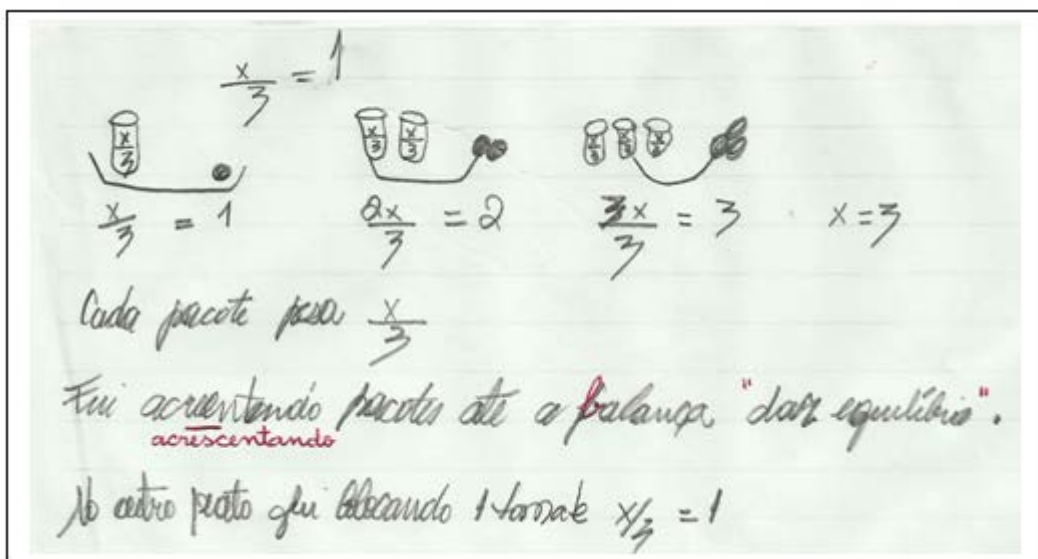 x/3 = 1
x/3 x/3 x/3 x/3 x/3 x/3
x/3 = 1 2x/3 = 2 3x/3 = 3 x=3
Cada pacote pesa x/3
Fui acrentando pacotes até a balança "dar equilíbrio".
acrescentando
No outro prato fui colocando 1 x/3 = 1